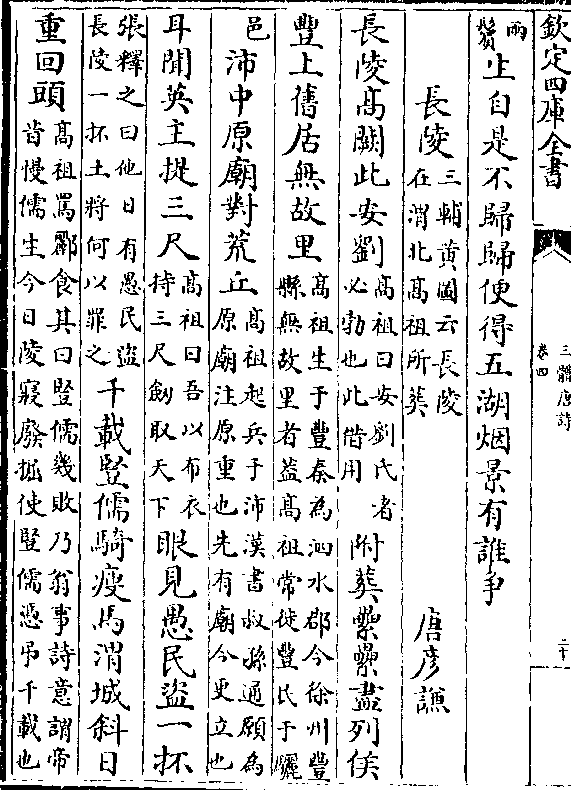 欽定四庫全書
三體唐詩
卷四
二十
兩鬢
止自是不歸歸便得五湖烟景有誰爭
長陵
三輔黄圖云長陵
在渭北髙祖所葬
唐彦謙
長陵髙闕此安劉
髙祖曰安劉氏者
必勃也此借用
附葬纍纍盡列侯
豐上舊居無故里
髙祖生于豐秦為泗水郡今徐州豐
縣無故里者葢髙祖常徙豐民于驪
邑
沛中原廟對荒丘
髙祖起兵于沛漢書叔孫通願為
原廟注原重也先有廟今更立也
耳聞英主提三尺
髙祖曰吾以布衣
持三尺劔取天下
眼見愚民盗一抔
張釋之曰他日有愚民盗
長陵一抔土將何以罪之
千載豎儒騎瘦馬渭城斜日
重回頭
髙祖罵酈食其曰豎儒幾敗乃翁事詩意謂帝
昔慢儒生今日陵寝廢掘使豎儒憑弔千載也